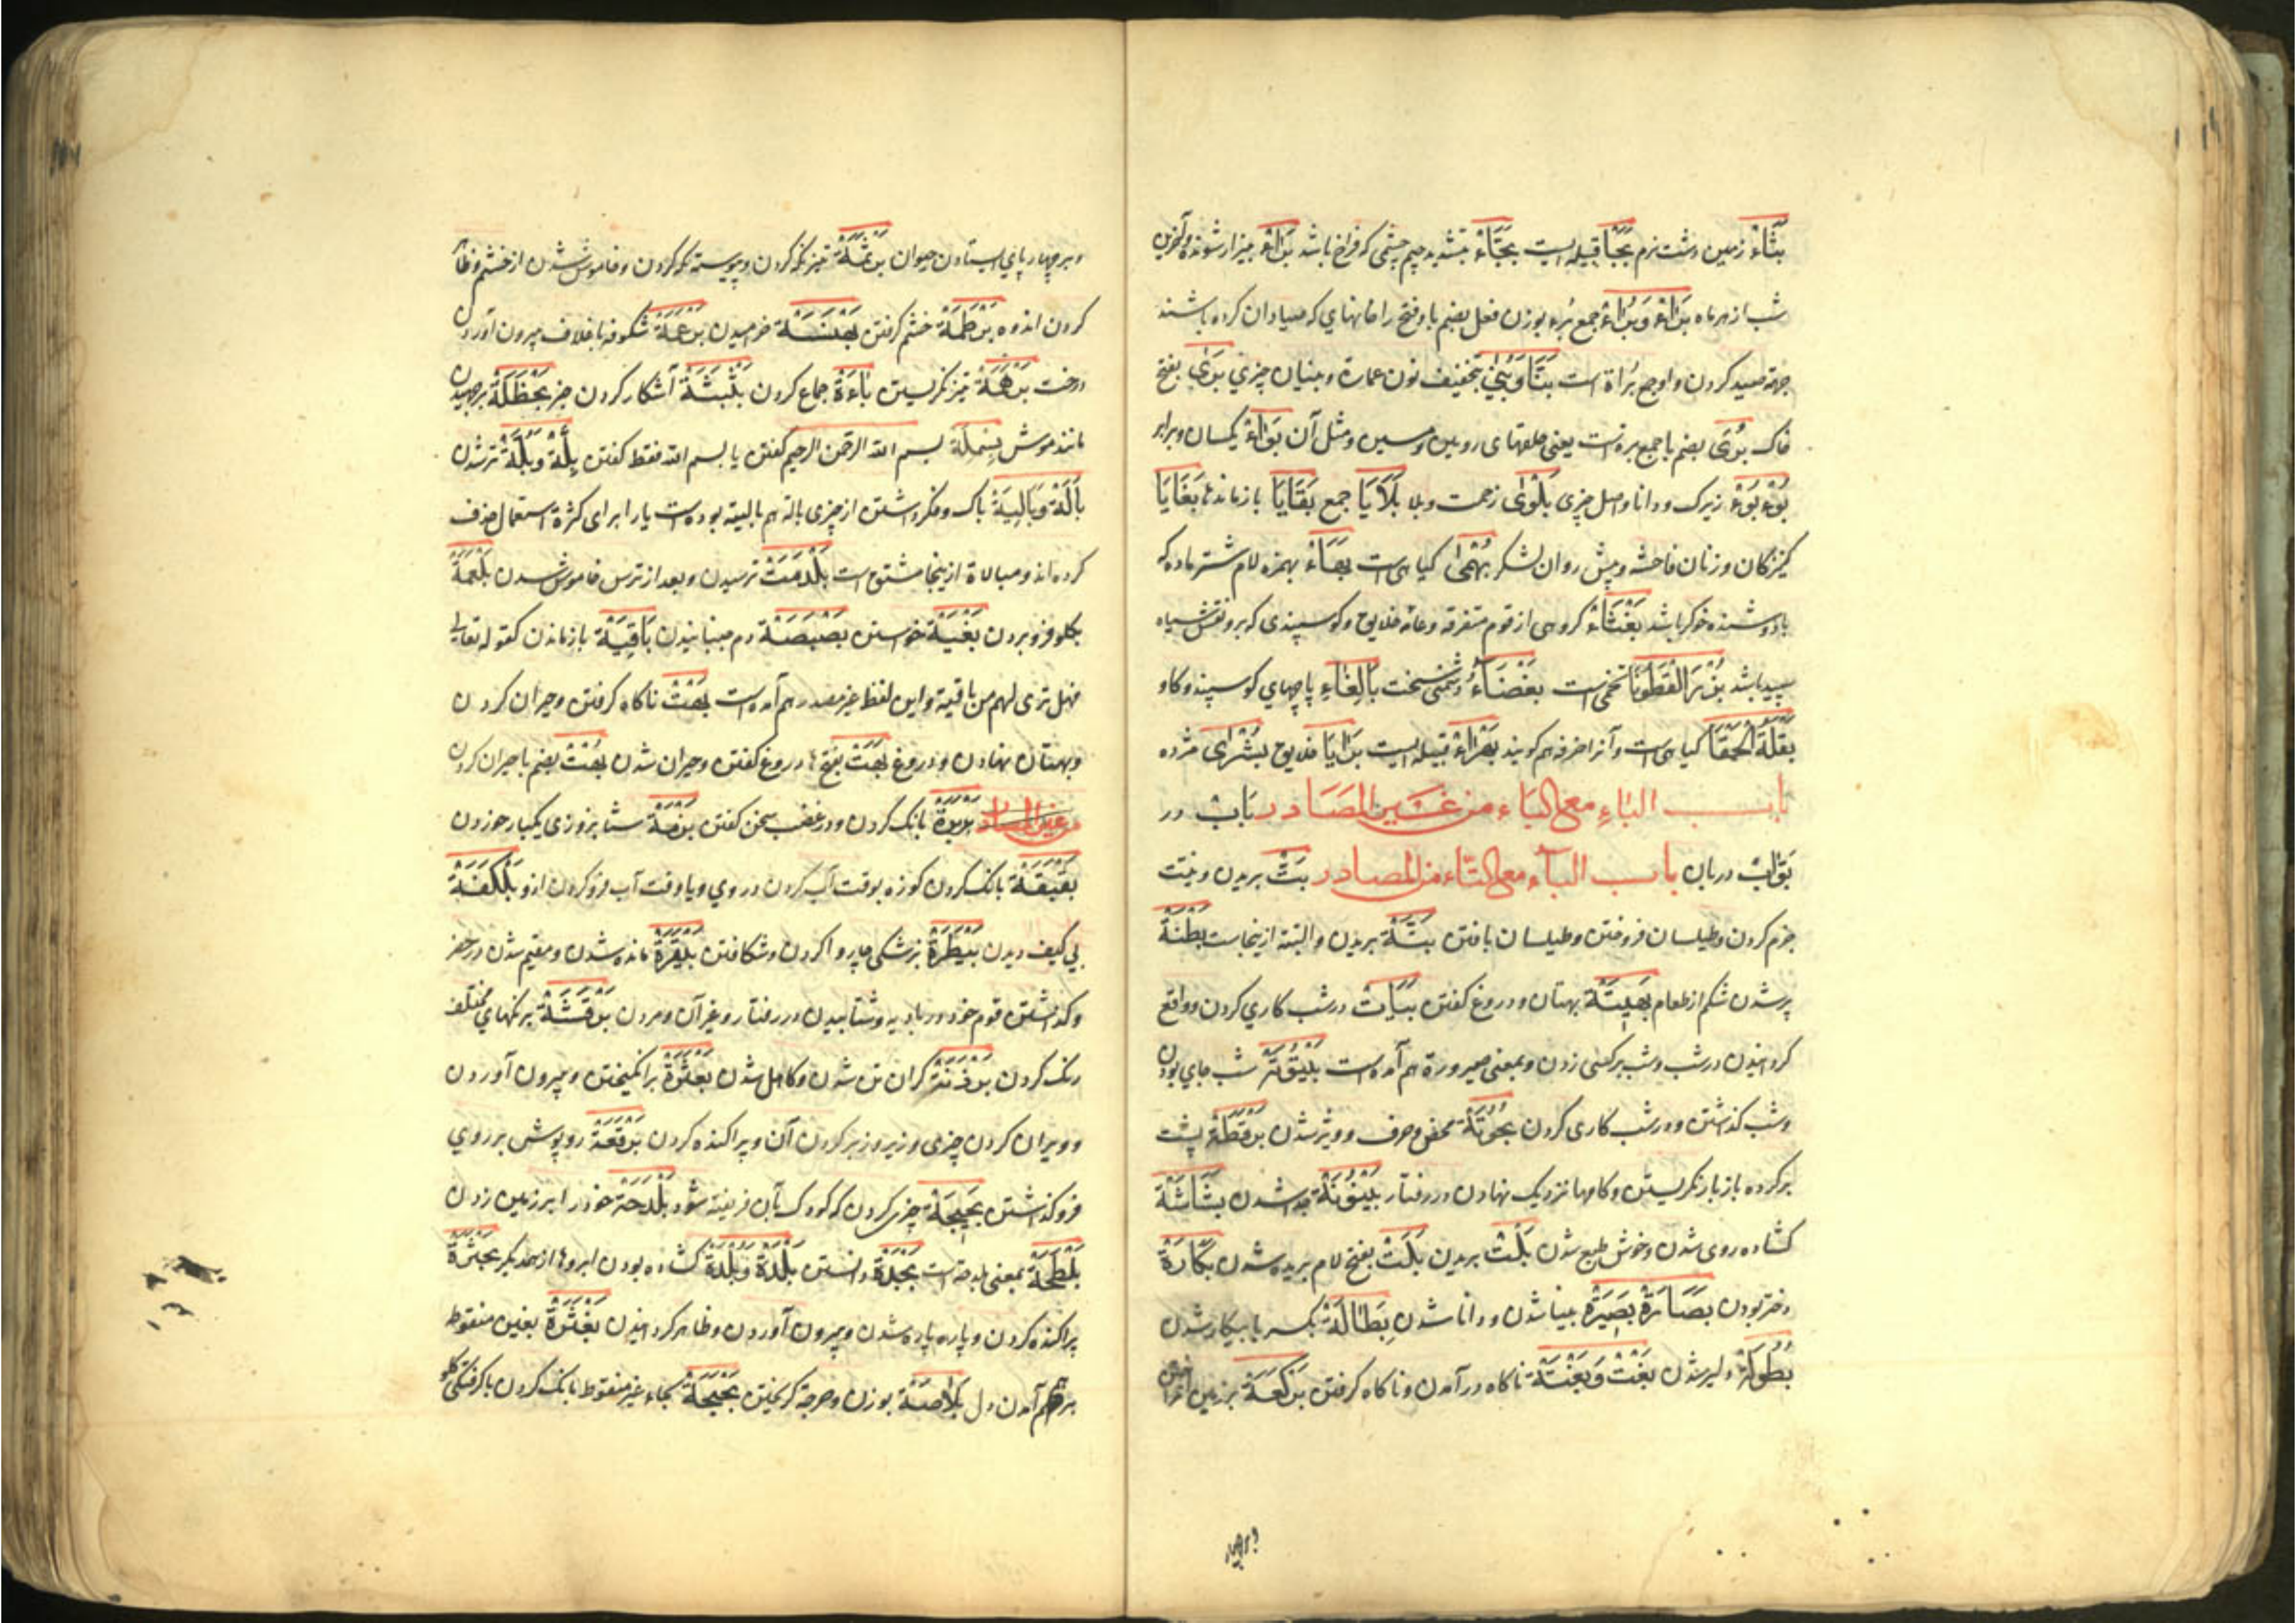 بثاء زمین دشت نرم بجبا قبیله ایست بجباء بتشدید جیم چشمی که فراخ باشد براء بیزار شونده و آخرین
شب از هر ماه براء و براء جمع برء بوزن فعل بضم با و فتح را خانهای که صیادان کرده باشند
جهة صید کردن واوجع براة است بنا و بنی بتخفیف نون عمارة و بنیان چیزی بری بفتح
خاک بری بضم با جمع برة است یعنی حلقهای رویین و مسین و مثل آن بواء یکسان و برابر
بؤبؤ زیرک و دانا و اصل چیزی بلوی زحمت و بلا بلایا جمع بقایا بازماندها بغایا
کنیزکان و زنان فاحشه و پیش روان لشکر بهمی کیاهی است بهاء بهمزه لام شتر ماده که
بادوشنده خوکر باشد بغثاء کروهی از قوم متفرقه و عامه خلایق و کوسپندی که برو نقش سیاه
سپید باشد بزر القطونا تخمی است بغضاء دشمنی سخت بالغاء پاچهای کوسپند و کاو
بقلة الحمقا کیاهی است و آنرا خرفه هم کویند بهراء قبیله ایست برایا خلایق بشری مژده
باب الباء مع الباء من غیر المصادر باب در
بواب دربان باب الباء مع التاء من المصادر بت بریدن و نیت
جزم کردن و طیلسان فروختن و طیلسان بافتن بتة بریدن و البته ازینجاست بطنة
پر شدن شکم از طعام بهیتة بهتان و دروغ کفتن بیات در شب کاری کردن و واقع
کردانیدن در شب و شب بر کسی زدن و بمعنی صیرورة هم آمده است بیتوتة شب جای بودن
و شب کذاشتن و در شب کاری کردن بحوتة محض و صرف و ویژه شدن برقطة پشت
بر کرده باز باز نکریستن و کامها نزدیک نهادن در رفتار بینونة جدا شدن بشاشة
کشاده روی شدن و خوش طبع شدن بلت بریدن بلت بفتح لام بریده شدن بکارة
دختر بودن بصارة بصیرة بینا شدن و دانا شدن بطالة بکسر با بیکار شدن
بطولة دلیر شدن بغت و بغتة ناکاه در آمدن و ناکاه کرفتن برکعة بر زمین
و بر چهار پای ایستادن حیوان برثمة تیز نکه کردن و پیوسته نکه کردن و خاموش شدن از خشم و ظاهر
کردن اندوه برطمة خشم کرفتن بهنسة خرامیدن برعمة شکوفه با غلاف بیرون آوردن
درخت برهمة تیز نکریستن باءة جماع کردن بثبثة آشکار کردن خبر بحظلة برجهیدن
مانند موش بسملة بسم الله الرحمن الرحیم کفتن یا بسم الله فقط کفتن بلة و بلة تر شدن
بالة و بالیة باک و فکر داشتن از چیزی بالة هم بالیة بوده است یا را برای کثرة استعمال حذف
کرده اند و مبالاة ازینجا مشتق است بلدمت ترسیدن و بعد از ترس خاموش شدن بلعمة
بکلو فرو بردن بغیة خواستن بصبصة دم جنبانیدن باقیة بازماندن کقوله تعالی
فهل تری لهم من باقیة و این لفظ غیر مصدر هم آمده است بهت ناکاه کرفتن و حیران کردن
و بهتان نهادن و دروغ بهت بفتح ها دروغ کفتن و حیران شدن بهت بضم با حیران کردن
من غیر المصادر بربرة بانک کردن و در غضب سخن کفتن بزمة شبانروزی یکبار خوردن
بقبقة بانک کردن کوزه بوقت آب کردن در وی و یا وقت آب فرو کردن از و بلکفة
بی کیف دیدن بیطرة پزشکی چاروا کردن و شکافتن بیقرة مانده شدن و مقیم شدن در حضر
و کذاشتن قوم خود در بادیه و شتابیدن در رفتار و غیر آن و مردن برقشة برنکهای مختلف
رنک کردن کران تن شدن و کاهل شدن بعثرة برانکیختن و بیرون آوردن
و ویران کردن چیزی و زیر و زبر کردن آن و پراکنده کردن برقعة روپوش بر روی
فرو کذاشتن بجبجة چیزی کردن که کودک بآن فریفته شود بلدحة خود را بر زمین زدن
بلطحة بمعنی بلدحة است بجدة دانستن بلدة و بلدة کشاده بودن ابروها از همدیکر بحثرة
پراکنده کردن و پاره پاره شدن و بیرون آوردن و ظاهر کردانیدن بغثرة بغین منقوط
برهم آمدن دل بلأصة بوزن دحرجة کریختن بحبحة بحاء غیر منقوط بانک کردن با کرفتکی کلو